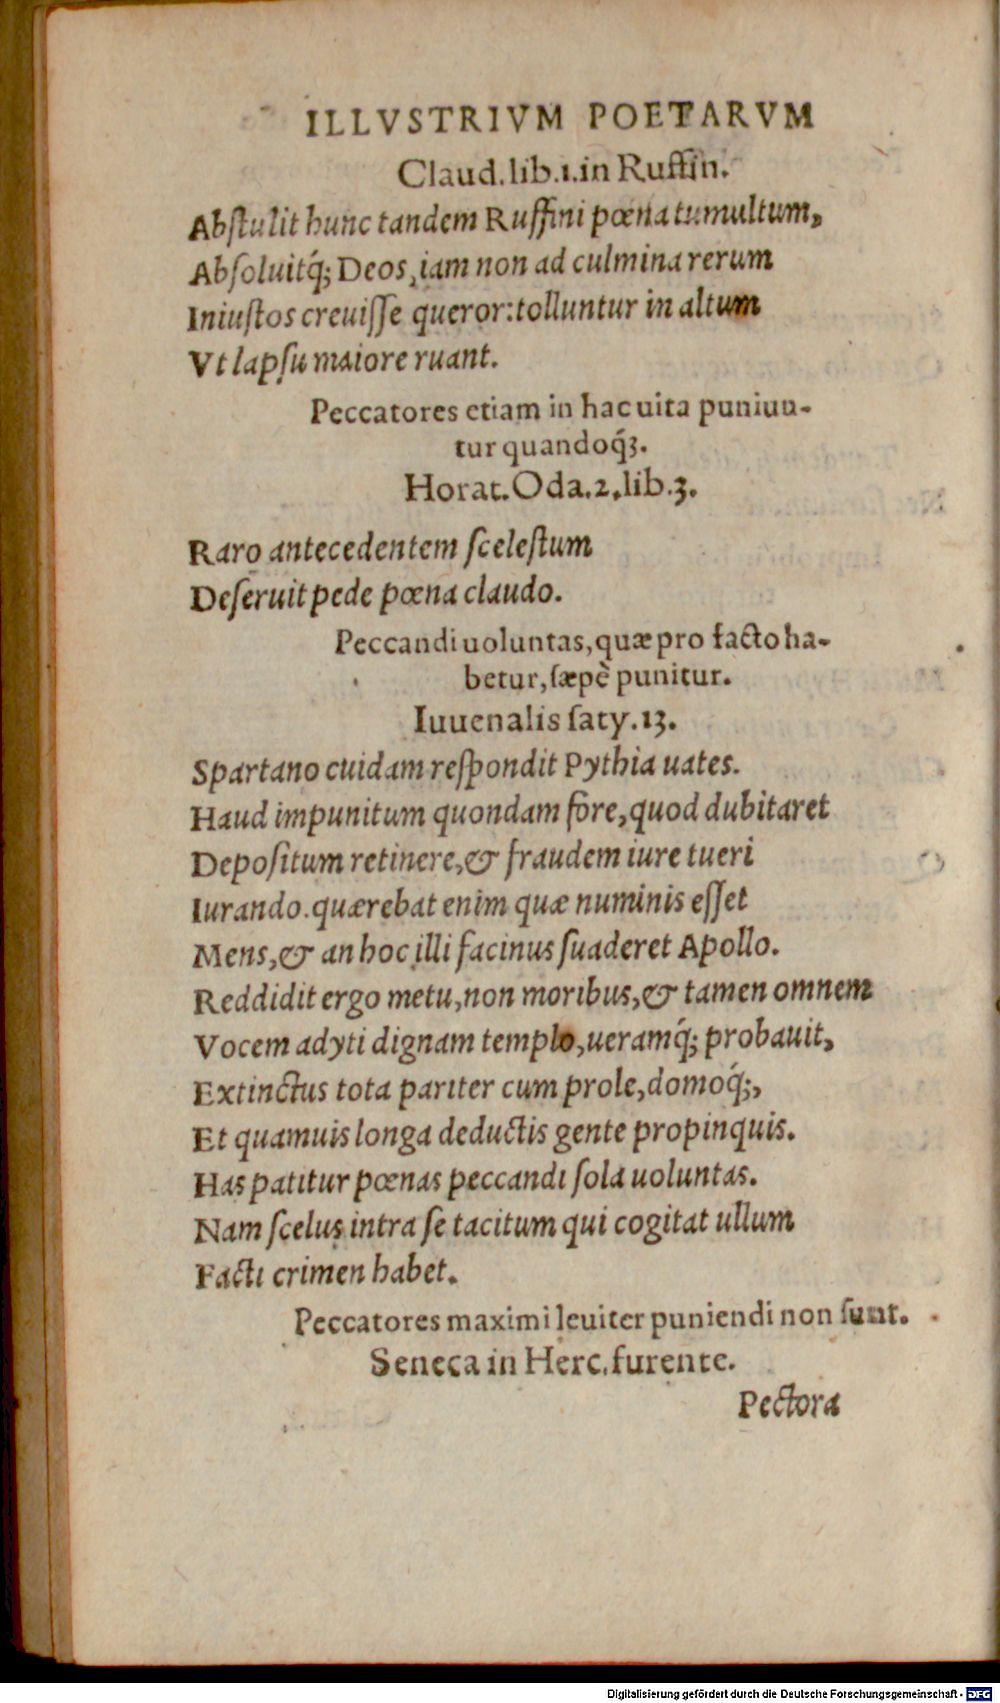 ILLVSTRIVM POETARVM
Claud. lib. 1. in Ruffin.
Abſtulit hunc tandem Ruffini pœna tumultum,
Abſoluitq́; Deos, iam non ad culmina rerum
Iniuſtos creuiſſe queror: tolluntur in altum
Vt lapſu maiore ruant.
Peccatores etiam in hac uita puniuu-
tur quandoq́ꝫ.
Horat. Oda. 2. lib. 3.
Raro antecedentem ſceleſtum
Deſeruit pede pœna claudo.
Peccandi uoluntas, quæ pro facto ha-
betur, ſæpè punitur.
Iuuenalis ſaty. 13.
Spartano cuidam reſpondit Pythia uates.
Haud impunitum quondam fore, quod dubitaret
Depoſitum retinere, & fraudem iure tueri
Iurando. quærebat enim quæ numinis eſſet
Mens, & an hoc illi facinus ſuaderet Apollo.
Reddidit ergo metu, non moribus, & tamen omnem
Vocem adyti dignam templo, ueramq́; probauit,
Extinctus tota pariter cum prole, domoq́;,
Et quamuis longa deductis gente propinquis.
Has patitur pœnas peccandi ſola uoluntas.
Nam ſcelus intra ſe tacitum qui cogitat ullum
Facti crimen habet.
Peccatores maximi leuiter puniendi non ſunt.
Seneca in Herc. furente.
Pectora
Digitalisierung gefördert durch die Deutsche Forschungsgemeinschaft - DFG